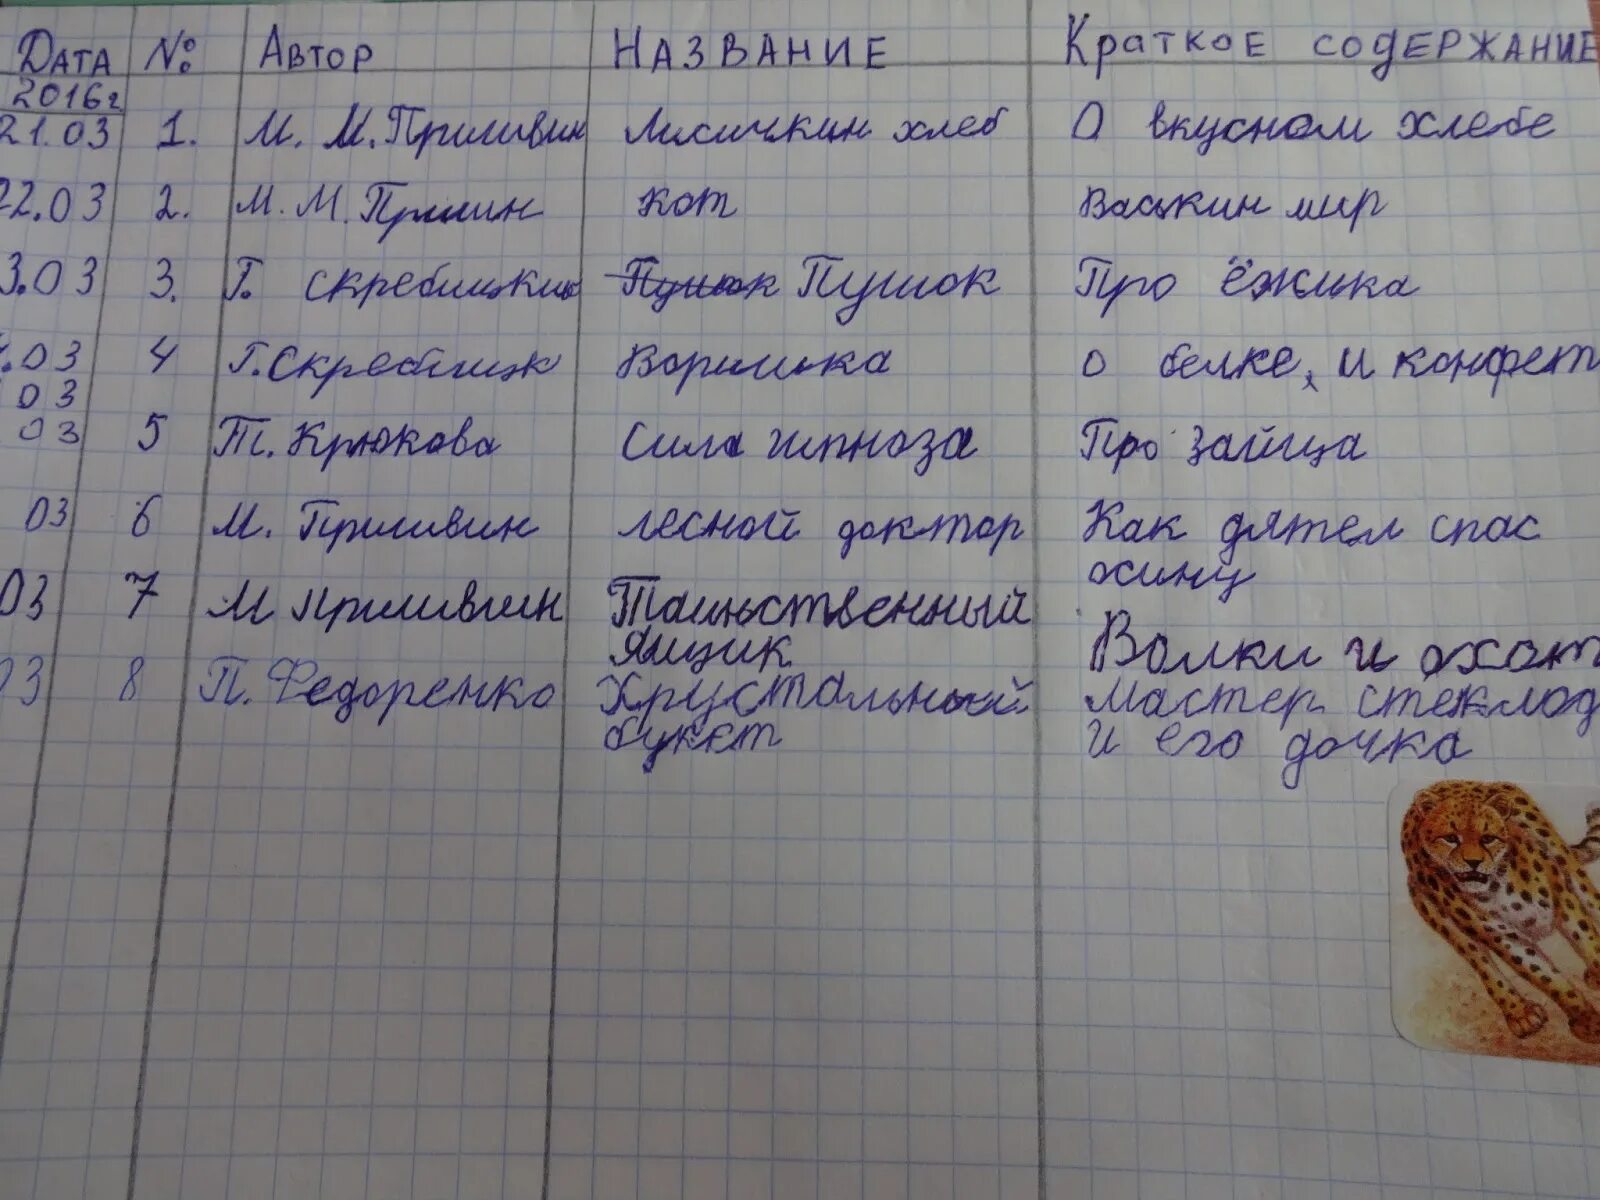 Дата № Автор Название Краткое содержание
2016г
21.03 1. М. М. Пришвин Лисичкин хлеб О вкусном хлебе
22.03 2. М. М. Пришин кот Васькин мир
3.03 3. Г. Скребицкий Пушок Пушок Про ёжика
.03 4 Г. Скребицк Воришка о белке, и конфет
03
03 5 Т. Крюкова Сила гипноза Про зайца
03 6 М. Пришвин лесной доктор Как дятел спас
осину
03 7 М Пришвин Таинственный
ящик Волки и охот
03 8 П. Федоренко Хрустальный Мастер стеклод
букет и его дочка